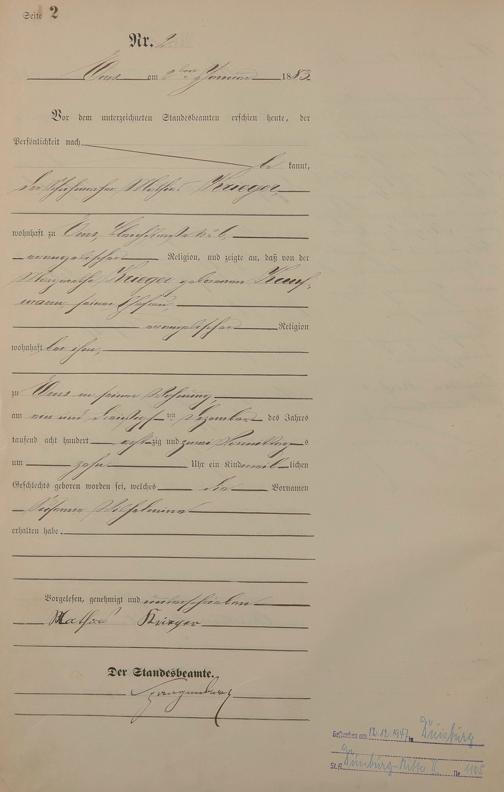 Seite 2
Nr. 2
Ems am 2ten Januar 1883.
Vor dem unterzeichneten Standesbeamten erschien heute, der
Persönlichkeit nach
be kannt,
der Schuhmacher Mathias Krieger
wohnhaft zu Ems,
evangelischer Religion, und zeigte an, daß von der
Margarethe Krieger geborenen
seiner Ehefrau
evangelischer Religion
wohnhaft bei ihm,
zu Ems in seiner Wohnung,
am ein und dreißigsten Dezember des Jahres
tausend acht hundert achtzig und zwei s
um zehn Uhr ein Kind weiblichen
Geschlechts geboren worden sei, welches die Vornamen
Wilhelmina
erhalten habe.
Vorgelesen, genehmigt und unterschrieben
Krieger
Der Standesbeamte.
Gestorben am 12.12.1947 in Duisburg
St. A. Duisburg-Mitte Nr. 1105